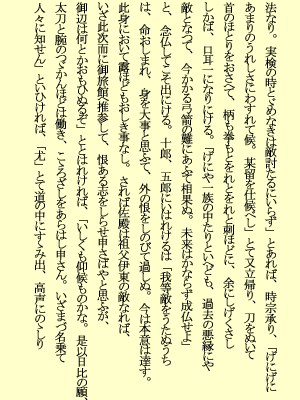 法なり。実検の時とゞめなきは敵討たるにいらず」とあれば、時宗承り、「げにげに
あまりのうれしさにわすれて候。某留を仕候べし」とて又立帰り、刀をぬいて
首のほとりをおさへて、柄も拳もとをれとをれと刺ほどに、余にしげくさし
しかば、口耳一になりにける。「げにや一族の中たりといへども、過去の悪縁にや
敵となつて、今かかる弓箭の難にあふて相果ぬ。未来はかならず成仏せよ」
と、念仏してこそ出にける。十郎、五郎にいはれけるは「我等敵をうたぬうち
は、命おしまれ、身を大事と思ふて、外の恨をしのびて過しぬ。今は本意は達す。
此身において露ほどもおしき事なし。されば佐殿は祖父伊東の敵なれば、
いざ此次而に御旅館へ推参して、恨ある志をしらせ申さばやと思ふが、
御辺は何とかおもひぬるぞ」ととはれければ、「いしくも仰候ものかな。是以日比の願、
太刀と腕のつゞかんほどは働き、こころざしをあらはし申さん。いざまづ名乗て
人々に知せん」といひければ、「尤」とて道の中にすゝみ出、高声にのゝしり